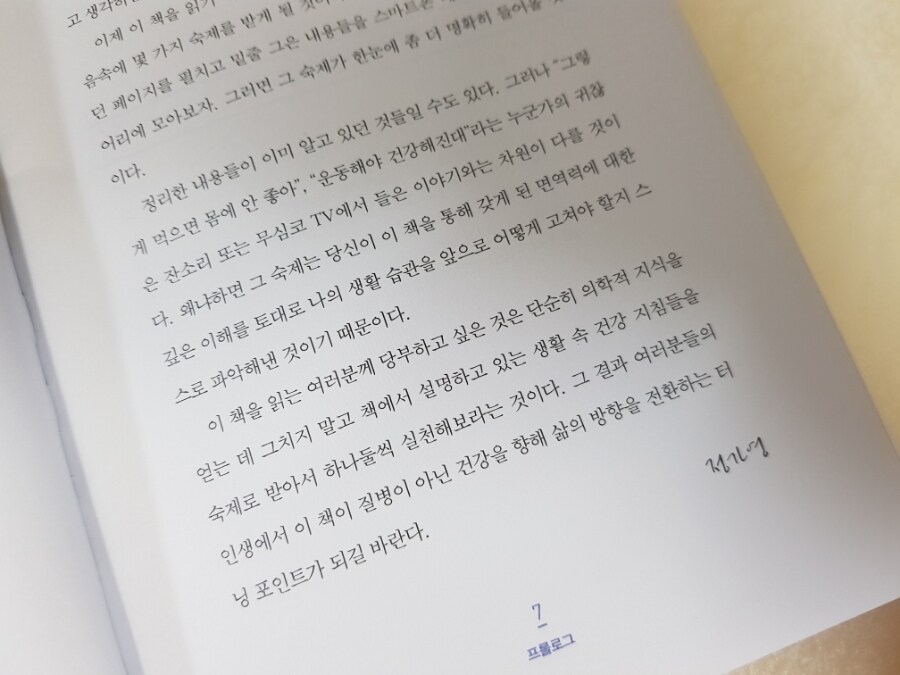 고 생각하
이제 이 책을 읽기
음속에 몇 가지 숙제를 받게 될 것이
던 페이지를 펼치고 밑줄 그은 내용들을 스마트폰
어리에 모아보자. 그러면 그 숙제가 한눈에 좀 더 명확히 들어올 것
이다.
정리한 내용들이 이미 알고 있던 것들일 수도 있다. 그러나 “그렇
게 먹으면 몸에 안 좋아”, “운동해야 건강해진대”라는 누군가의 귀찮
은 잔소리 또는 무심코 TV에서 들은 이야기와는 차원이 다를 것이
다. 왜냐하면 그 숙제는 당신이 이 책을 통해 갖게 된 면역력에 대한
깊은 이해를 토대로 나의 생활 습관을 앞으로 어떻게 고쳐야 할지 스
스로 파악해낸 것이기 때문이다.
이 책을 읽는 여러분께 당부하고 싶은 것은 단순히 의학적 지식을
얻는 데 그치지 말고 책에서 설명하고 있는 생활 속 건강 지침들을
숙제로 받아서 하나둘씩 실천해보라는 것이다. 그 결과 여러분들의
인생에서 이 책이 질병이 아닌 건강을 향해 삶의 방향을 전환하는 터
닝 포인트가 되길 바란다.
정가영
7
프롤로그